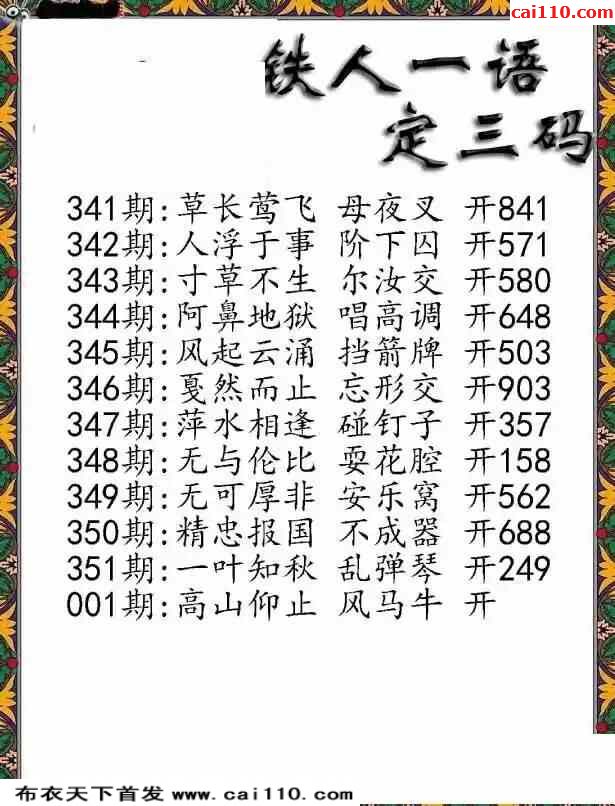 cai110.com
铁人一语
定三码
341期:草长莺飞 母夜叉 开841
342期:人浮于事 阶下囚 开571
343期:寸草不生 尔汝交 开580
344期:阿鼻地狱 唱高调 开648
345期:风起云涌 挡箭牌 开503
346期:戛然而止 忘形交 开903
347期:萍水相逢 碰钉子 开357
348期:无与伦比 耍花腔 开158
349期:无可厚非 安乐窝 开562
350期:精忠报国 不成器 开688
351期:一叶知秋 乱弹琴 开249
001期:高山仰止 风马牛 开
布衣天下首发 www.cai110.com